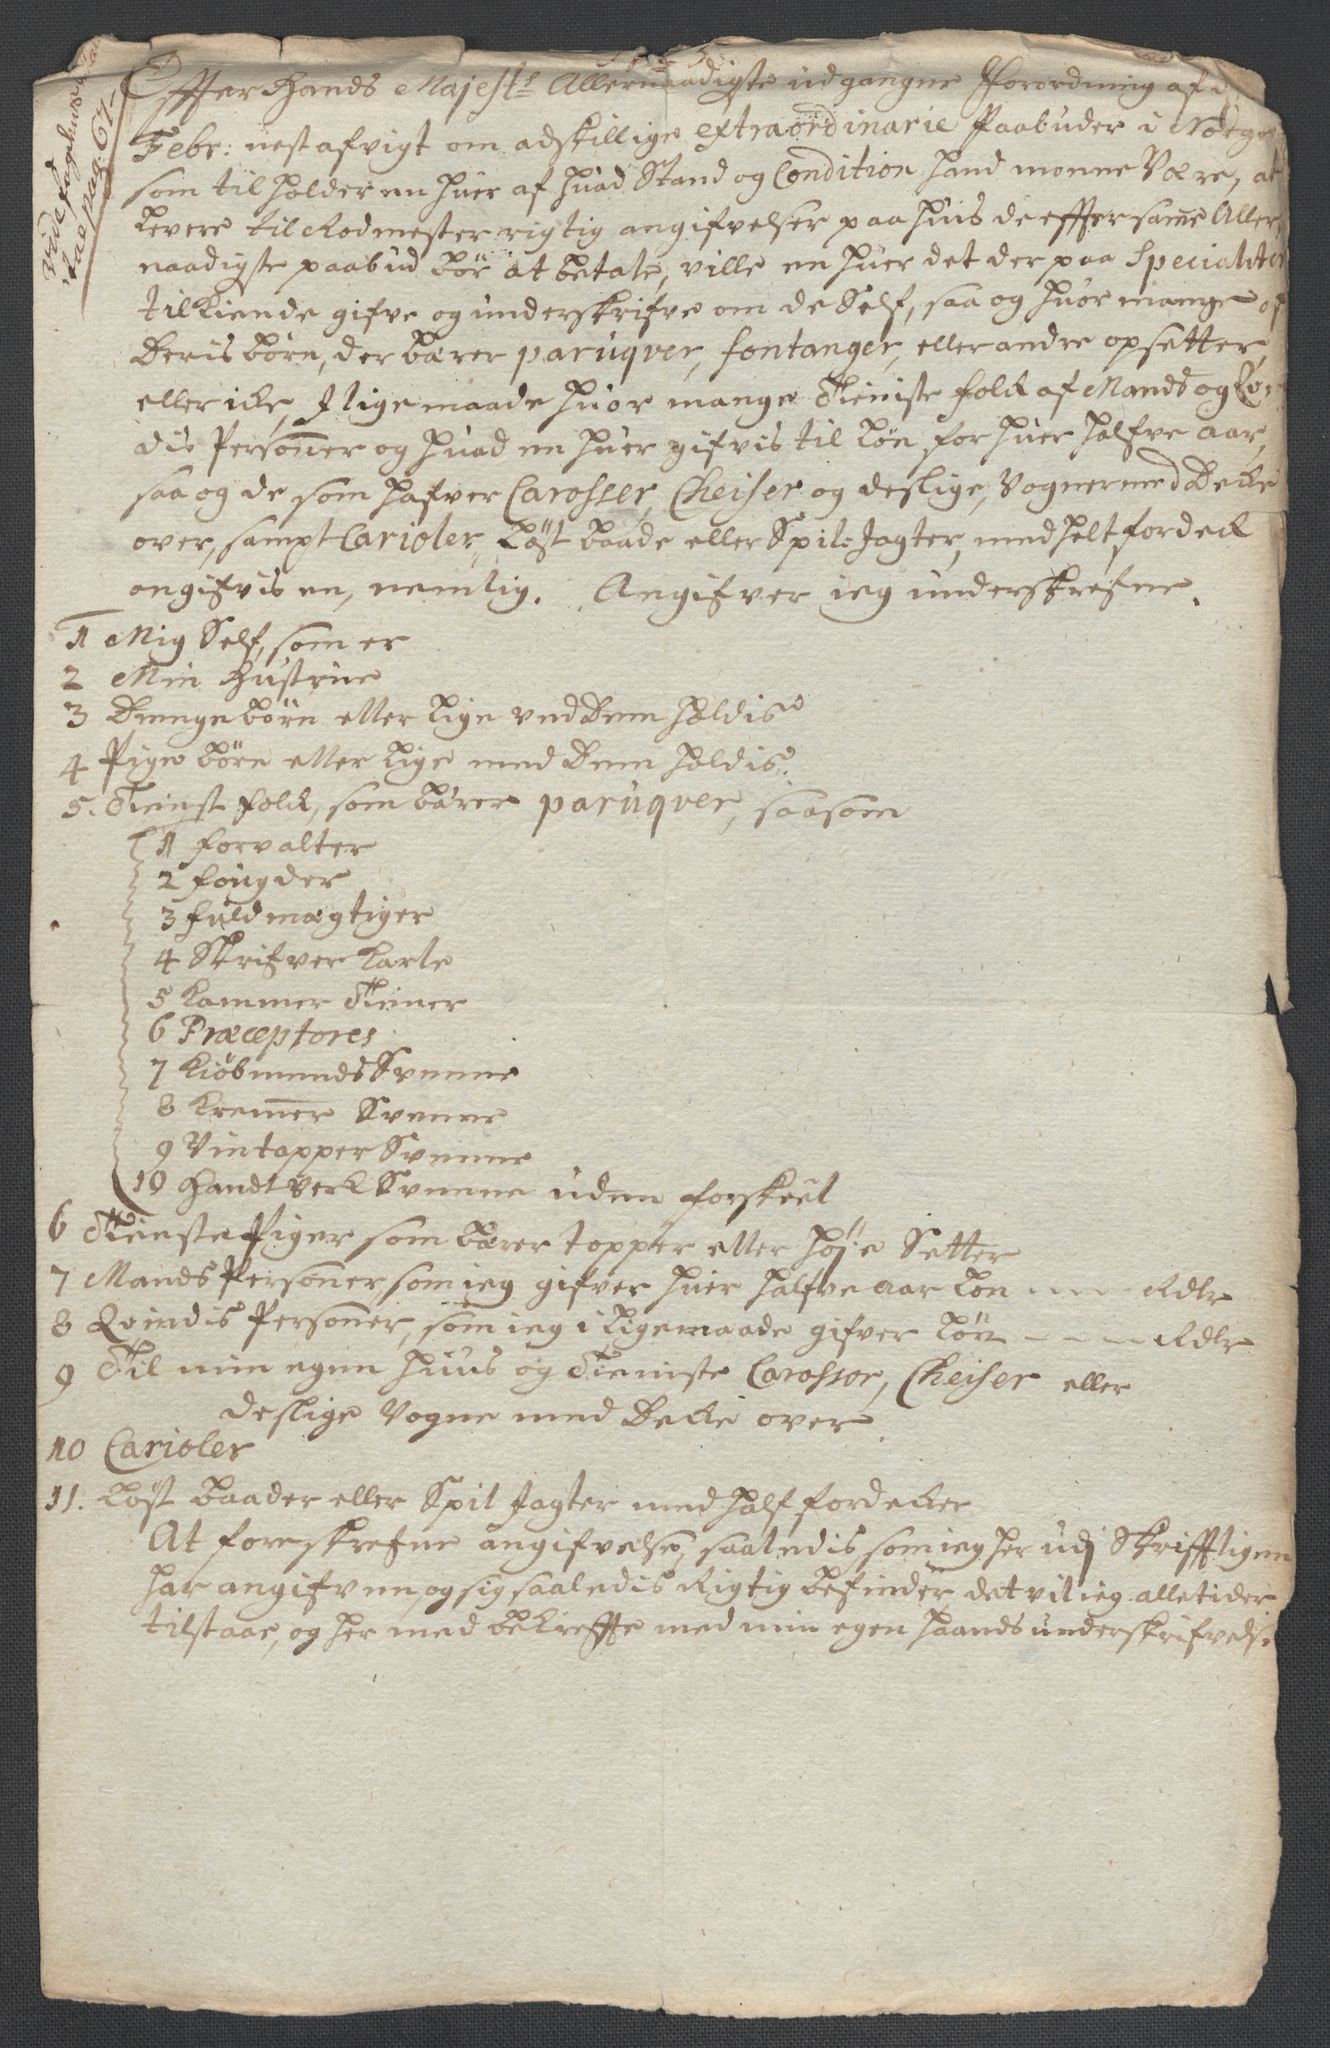 Effter Hands Majest:s Allernaadigste udgangne Forordning af
Febr: nest afvigt om adskillige extraordinarie Paabuder i Norge
som tilholder en huer af huad Stand og Condition hand monne Være, at
levere til Rodmester rigtig angifvelser paa huis de effter same Aller,
naadigste paabud bør at betale, ville en huer det der paa Specialiter
tilkiende gifve og underskrifve om de Self, saa og huor mange af
deris børn, der bærer paruqver, fontanger, eller andre opsetter,
eller icke, Jligemaade huor mange Tieniste folck af Mands og Qvin
dis Personer og huad en huer gifvis til løn for huer halfve aar,
saa og de som hafver Carosser, Cheiser og deslige, Vogner med Decke
over, sampt Carioler, Løst baade eller Spil: Jagter, med helt fordeck
angifvis en, nemlig. Angifver ieg underskrefne.
1 Mig Self, som er
2 Min Hustrue
3 Drenge børn eller lige ved dem holdis
4 Pige børn eller lige med dem holdis.
5. Tienst folck, som bærer paruqver, saasom
1 forvalter
2 fougder
3 fuldmægtiger
4 Skrifver karle
5 Kammer Tiener
6 Præceptores
7 KiøbmendsSvenne
8 Kremer Svenne
9 Vintapper Svenne
10 Handtverck Svenne uden forskeel
6 Tieneste Piger som bærer topper eller høje Setter
7 Mands Personer, som ieg gifver huer halfve aar løn - - - - Rdlr
8 Qvindis Personer, som ieg i ligemaade gifver løn - - - - Rdlr
9 Til min egen huus og Tieniste Carosser, Cheiser eller
deslige Vogne med decke over.
10 Carioler
11. Løst baader eller Spil Jagter med half fordecker
At foreskrefne angifvelse, saaledis som ieg her udj Skrifftligen
har angifven, og sig saaledis Rigtig befinder, det vil ieg alle tider
tilstaae, og her med bekreffte med min egen haands underskrifvelse